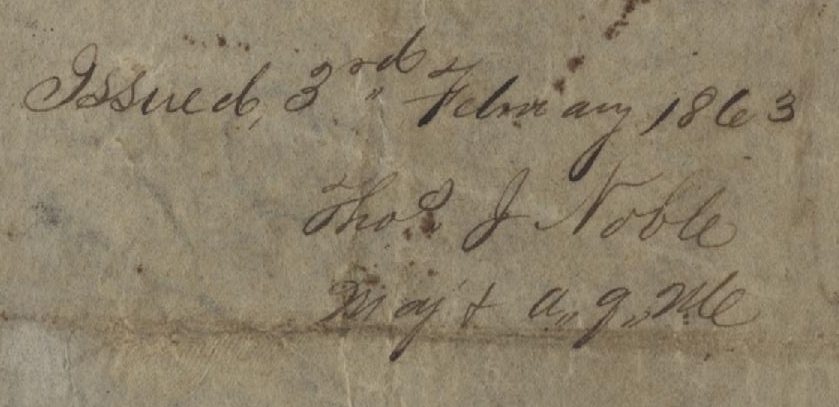 Issued, 3rd February 1863
Thos J Noble
Maj & A,, Q,, M